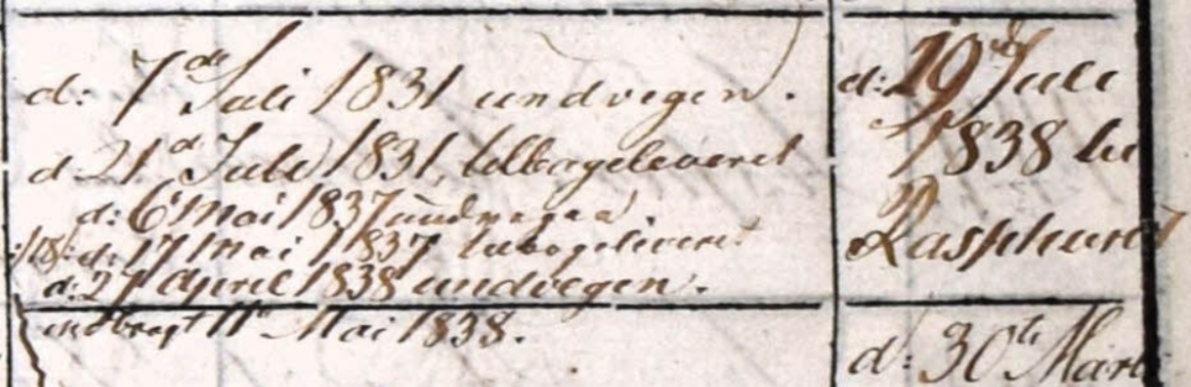 d: 7de Juli 1831 undvegen.
d 21d Juli 1831, tilbageleveret
d: 6t Mai 1837 undvegen.
d: 17 Mai 1837 tilbageliveret
d: 27 April 1838 undvegen.
indbragt 11te Mai 1838.
d: 19de Juli
1838 til
Rasphuset
d: 30te Marti